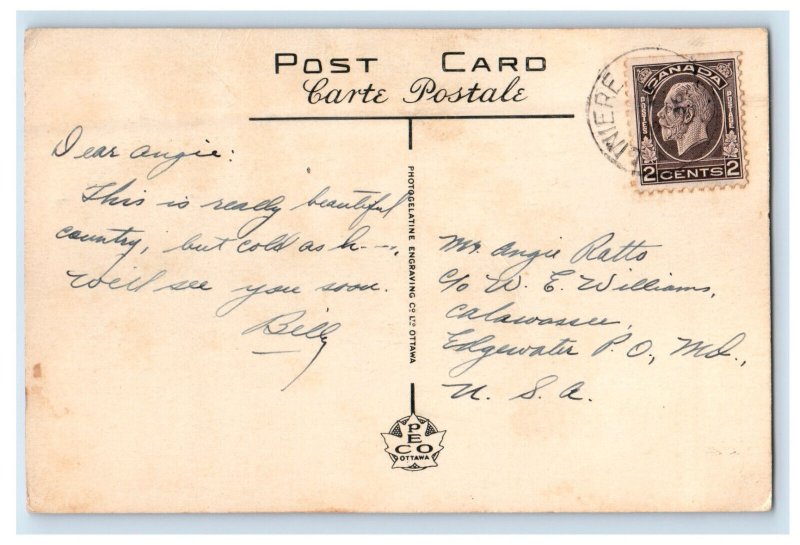 POST CARD
Carte Postale
Dear Angie:
This is really beautiful
country, but cold as h---.
We'll see you soon.
Billy
PHOTOGELATINE ENGRAVING CO. LTD. OTTAWA
PECO
OTTAWA
INIERE
CANADA
2 CENTS 2
Mr. Angie Ratto
c/o W. E. Williams,
Calawassee,
Edgewater P.O., Md.,
U. S. A.